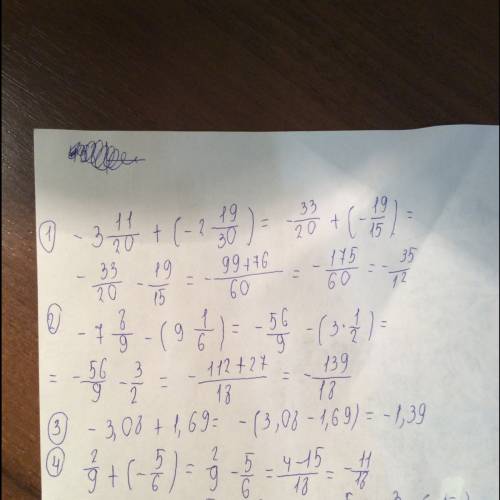 ① -3 11/20 + (-2 19/30) = -33/20 + (-19/15) =
-33/20 - 19/15 = -99+76/60 = -175/60 = -35/12
② -7 8/9 - (9 1/6) = -56/9 - (3·1/2) =
= -56/9 - 3/2 = -112+27/18 = -139/18
③ -3,08 + 1,69 = -(3,08 - 1,69) = -1,39
④ 2/9 + (-5/6) = 2/9 - 5/6 = 4-15/18 = -11/18